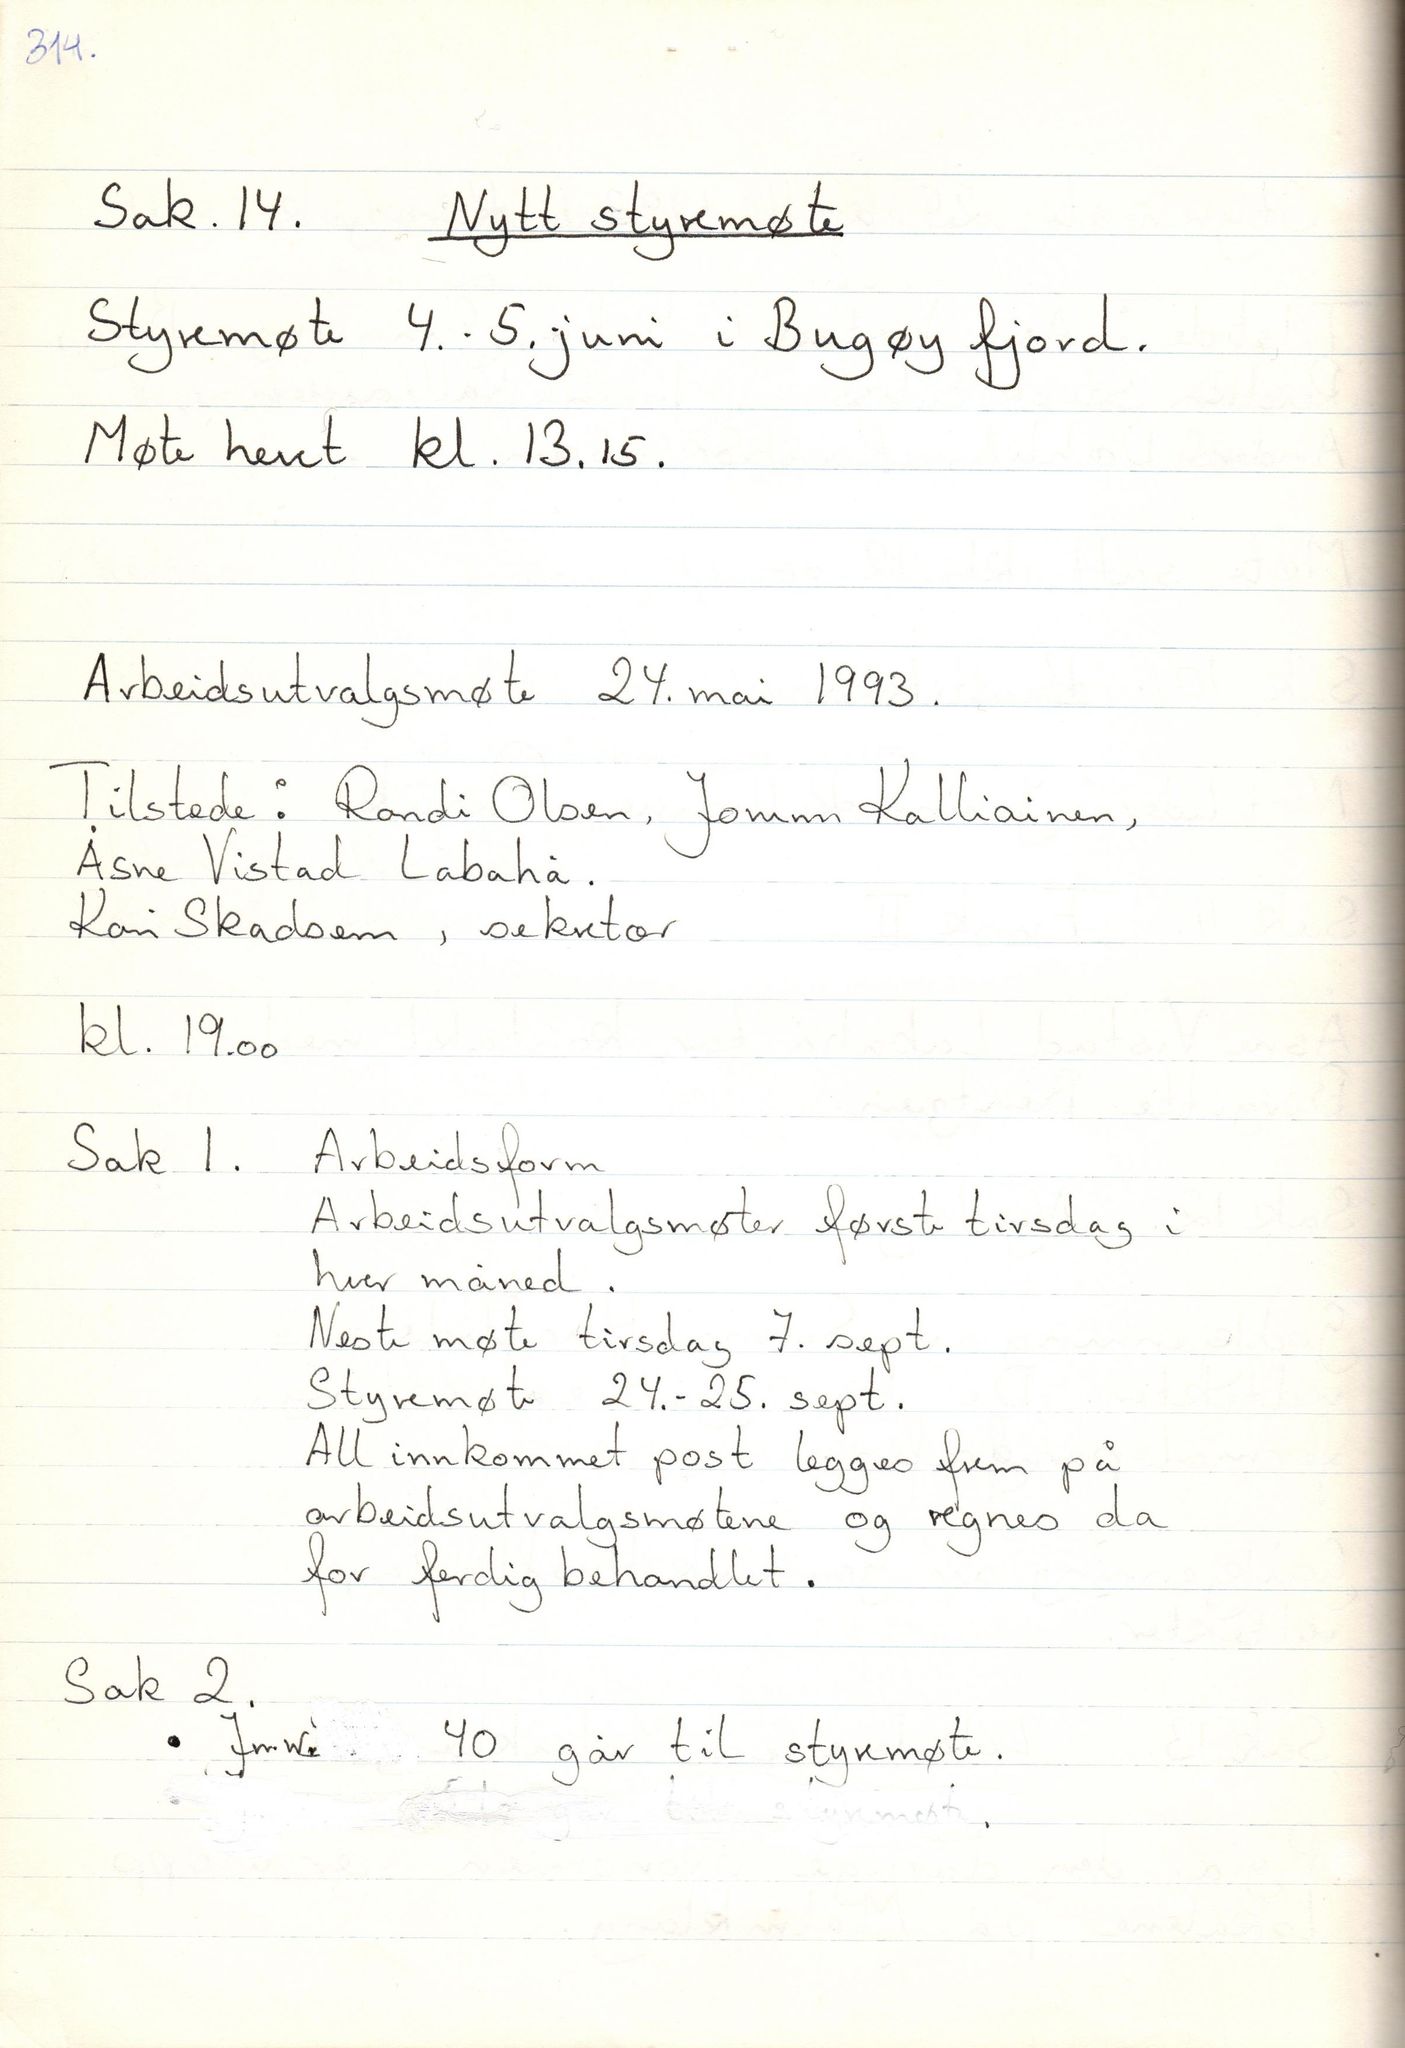 314.
Sak. 14. Nytt styremøte
Styremøte 4.-5. juni i Bugøyfjord.
Møte hevet kl. 13.15.
Arbeidsutvalgsmøte 24. mai 1993.
Tilstede: Randi Olsen, Jomm Kalliainen,
Åsne Vistad Labahå.
Kari Skadsem, sekretær
kl. 19.00
Sak 1. Arbeidsform
Arbeidsutvalgsmøter første tirsdag i
hver måned.
Neste møte tirsdag 7. sept.
Styremøte 24.-25. sept.
All innkommet post legges frem på
arbeidsutvalgsmøtene og regnes da
for ferdig behandlet.
Sak 2.
• 40 går til styremøte.